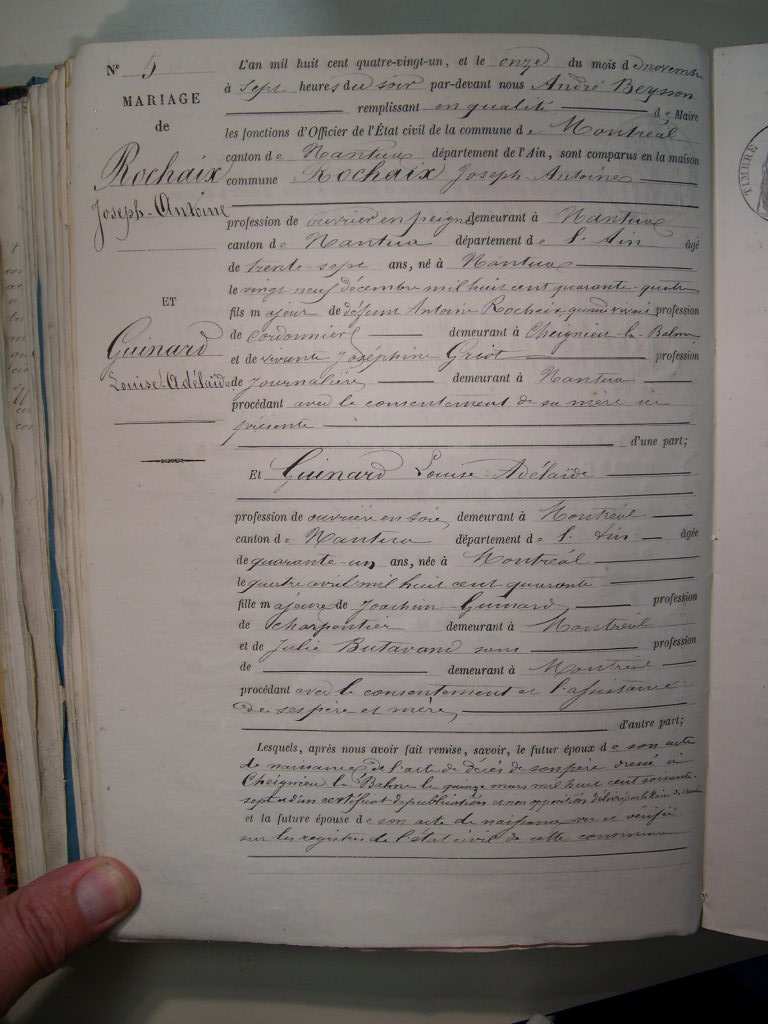 N° 5
MARIAGE
de
Rochaix
Joseph-Antoine
ET
Guinard
Louise-Adélaïde
L'an mil huit cent quatre-vingt-un, et le onze du mois de novembre
à sept heures du soir par-devant nous André Beysson
remplissant en qualité de Maire
les fonctions d'Officier de l'État civil de la commune de Montréal
canton de Nantua département de l'Ain, sont comparus en la maison
commune Rochaix Joseph-Antoine
profession de ouvrier en peignes demeurant à Nantua
canton de Nantua département de l'Ain âgé
de trente-sept ans, né à Nantua
le vingt neuf décembre mil huit cent quarante-quatre
fils majeur de défunt Antoine Rochaix, quand vivait profession
de Cordonnier demeurant à Cheignieu-la-Balme
et de vivante Joséphine Griot profession
de Journalière demeurant à Nantua
procédant avec le consentement de sa mère ici
présente
d'une part;
Et Guinard Louise-Adélaïde
profession de ouvrière en soie demeurant à Montréal
canton de Nantua département de l'Ain âgée
de quarante-un ans, née à Montréal
le quatre avril mil huit cent quarante
fille majeure de Joachim Guinard profession
de charpentier demeurant à Montréal
et de Julie Butavand sans profession
de demeurant à Montréal
procédant avec le consentement et l'assistance
de ses père et mère,
d'autre part;
Lesquels, après nous avoir fait remise, savoir, le futur époux de son acte
de naissance, de l'acte de décès de son père dressé à
Cheignieu la Balme le quinze mars mil huit cent soixante-
sept et d'un certificat de publication et non opposition délivré par le Maire de Nantua
et la future épouse de son acte de naissance vu et vérifié
sur les registres de l'état civil de cette commune
TIMBRE